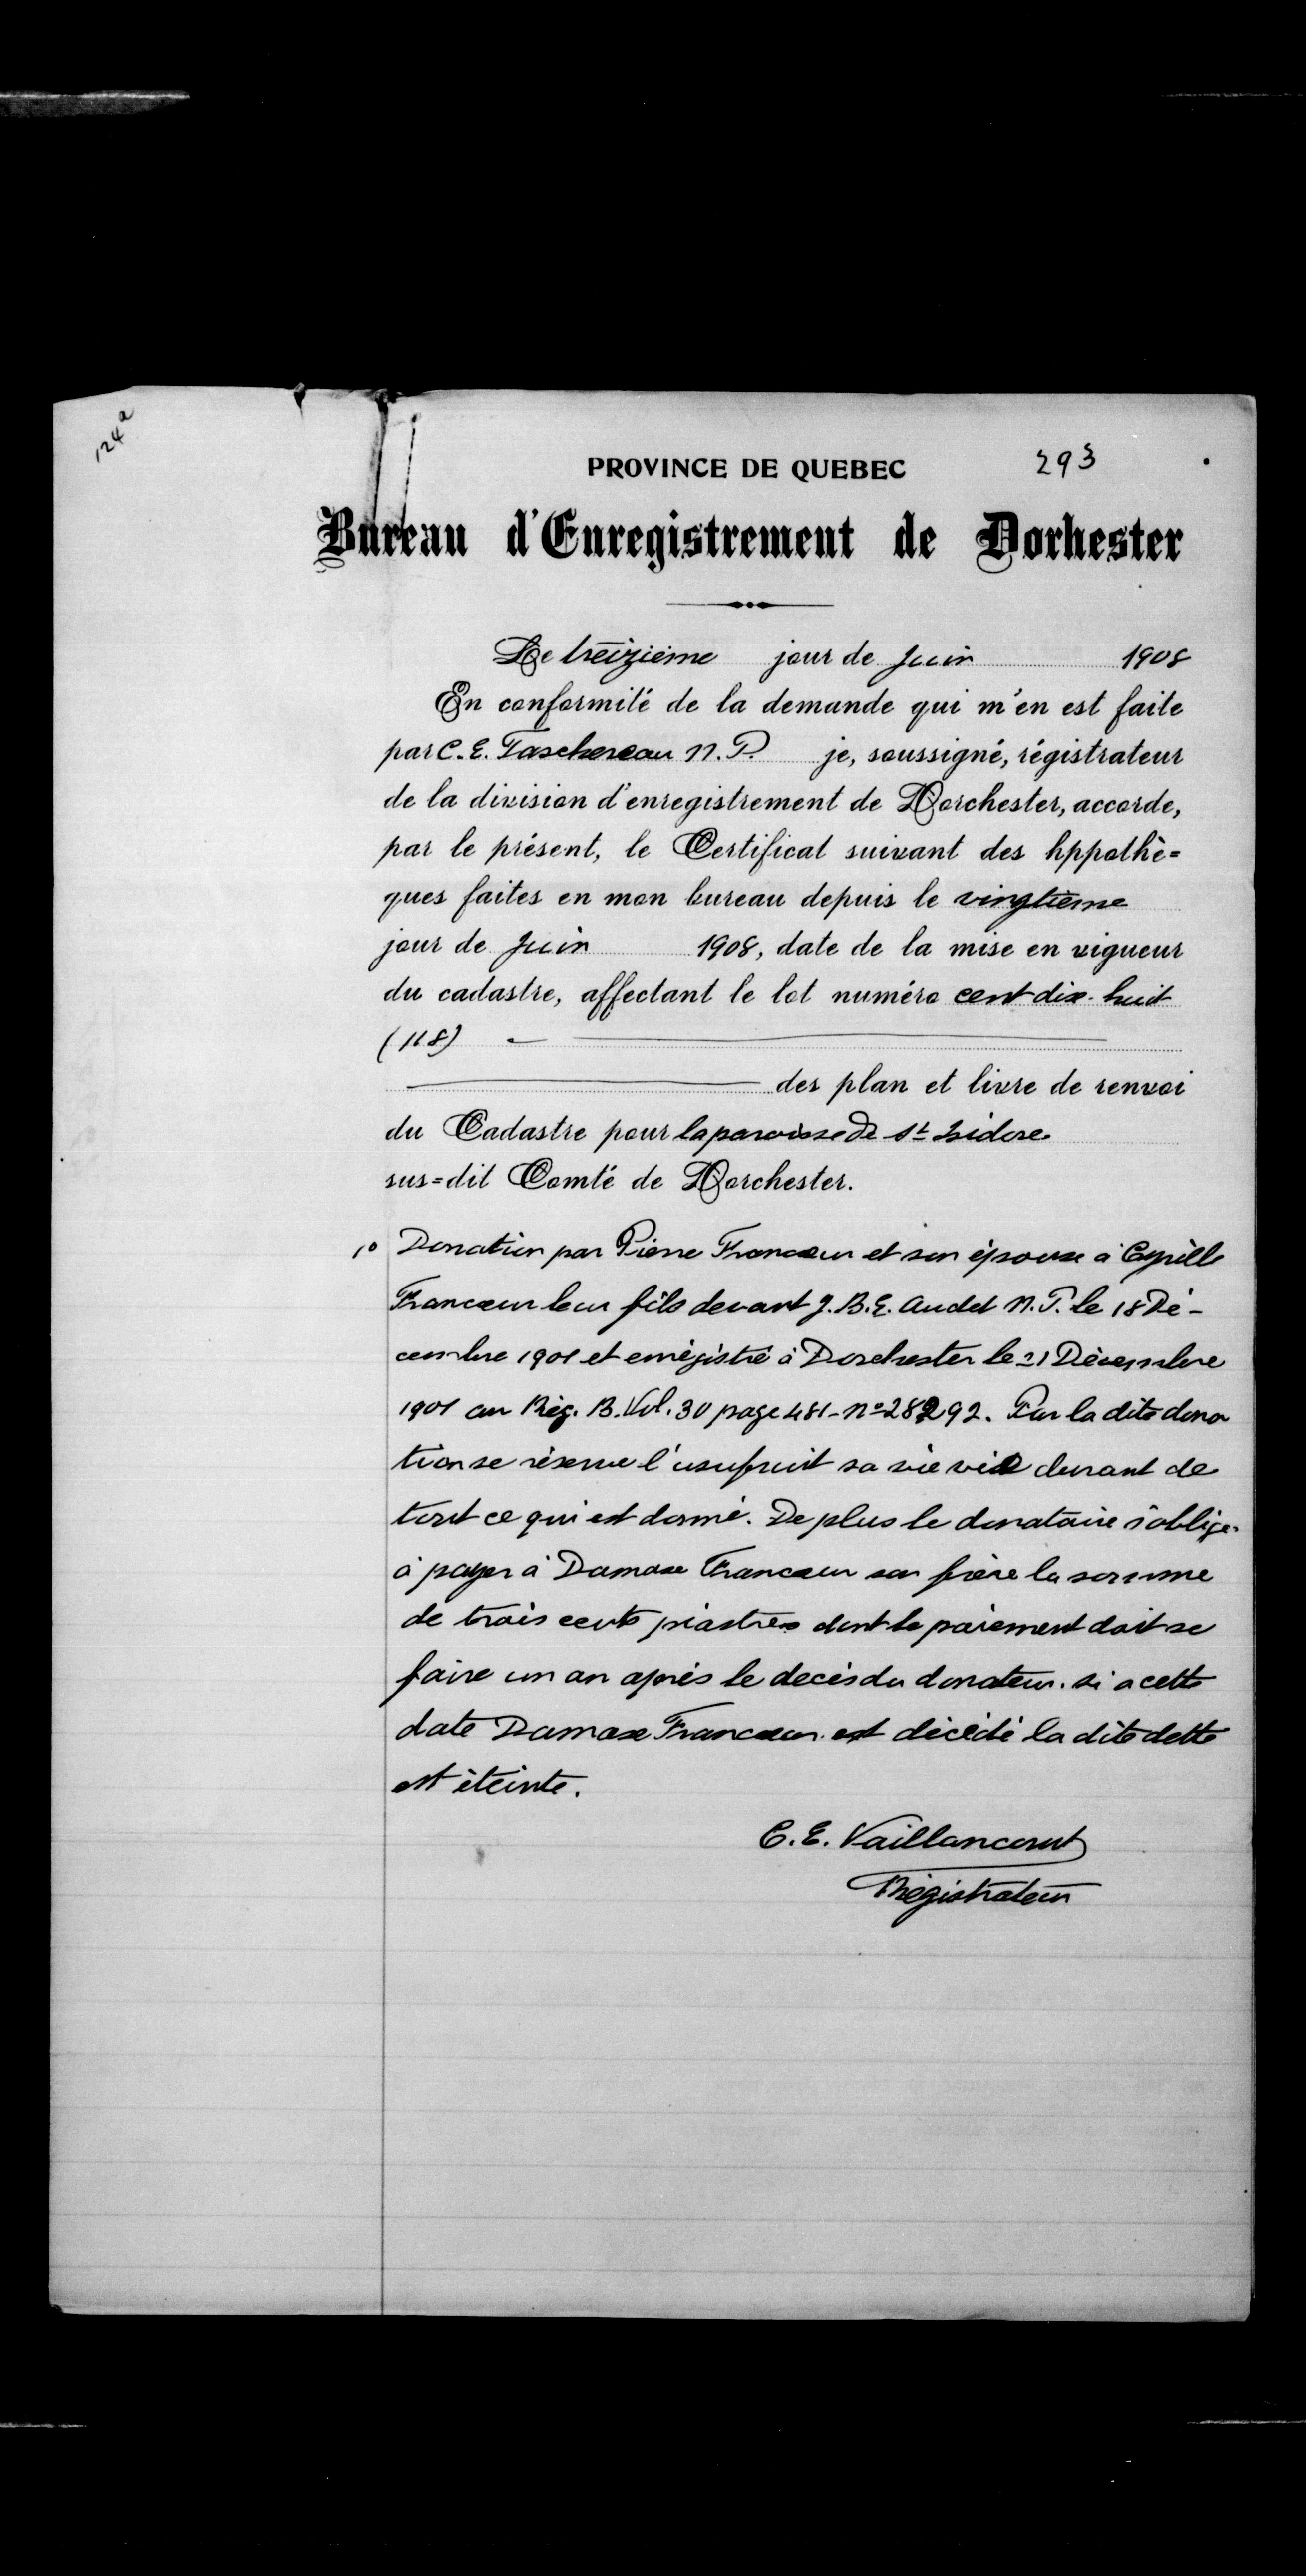 124a
PROVINCE DE QUEBEC 293
Bureau d'Enregistrement de Dorhester
Le treizième jour de Juin 1908
En conformité de la demande qui m'en est faite
par C. E. Taschereau N. P. je, soussigné, régistrateur
de la division d'enregistrement de Dorchester, accorde,
par le présent, le Certificat suivant des hppothè=
ques faites en mon bureau depuis le vingtième
jour de Juin 1908, date de la mise en vigueur
du cadastre, affectant le lot numéro cent dix-huit
(118)
des plan et livre de renvoi
du Cadastre pour la paroisse de St Isidore
sus=dit Comté de Dorchester.
1o Donation par Pierre Francœur et son épouse à Cyrille
Francœur leur fils devant J. B. E. Audet N. P. le 18 Dé-
cembre 1901 et enrégistré à Dorchester le 21 Décembre
1901 au Rég. B. Vol. 30 page 481 - No 28292. Par la dite dona
tion se réserve l'usufruit sa vie vie durant de
tout ce qui est donné. De plus le donataire s'oblige
à payer à Damase Francœur son frère la somme
de trois cents piastres dont le paiement doit se
faire un an après le decès du donateur. si a cette
date Damase Francœur est décédé la dite dette
est éteinte.
C. E. Vaillancourt
Régistrateur